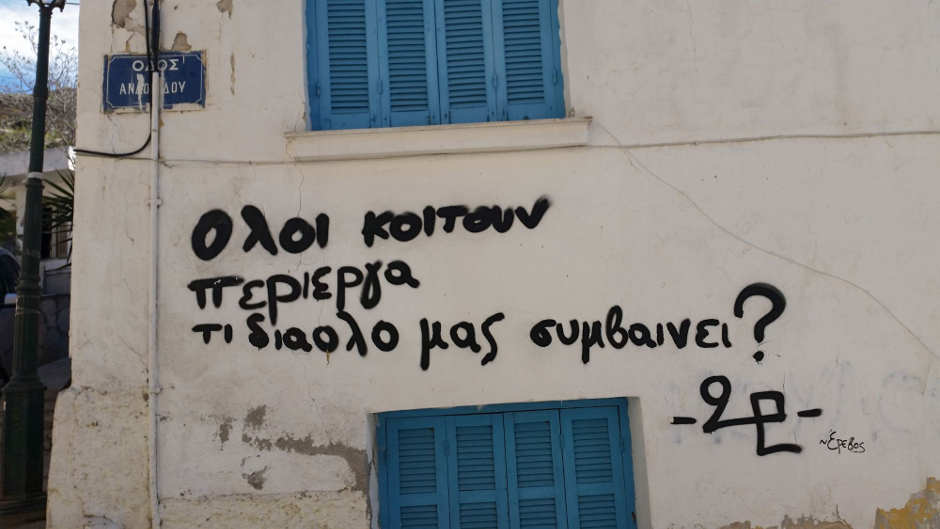 ΟΔΟΣ
Ολοι κοιτουν
περιεργα
τι διαολο μας συμβαινει?
~Έρεβος